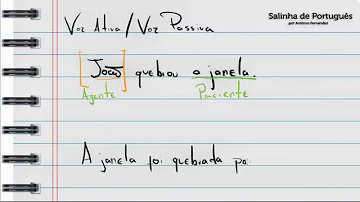 Salinha de Português
por Antônio Fernandes
Voz Ativa / Voz Passiva
João quebrou a janela.
Agente Paciente
A janela foi quebrada pa